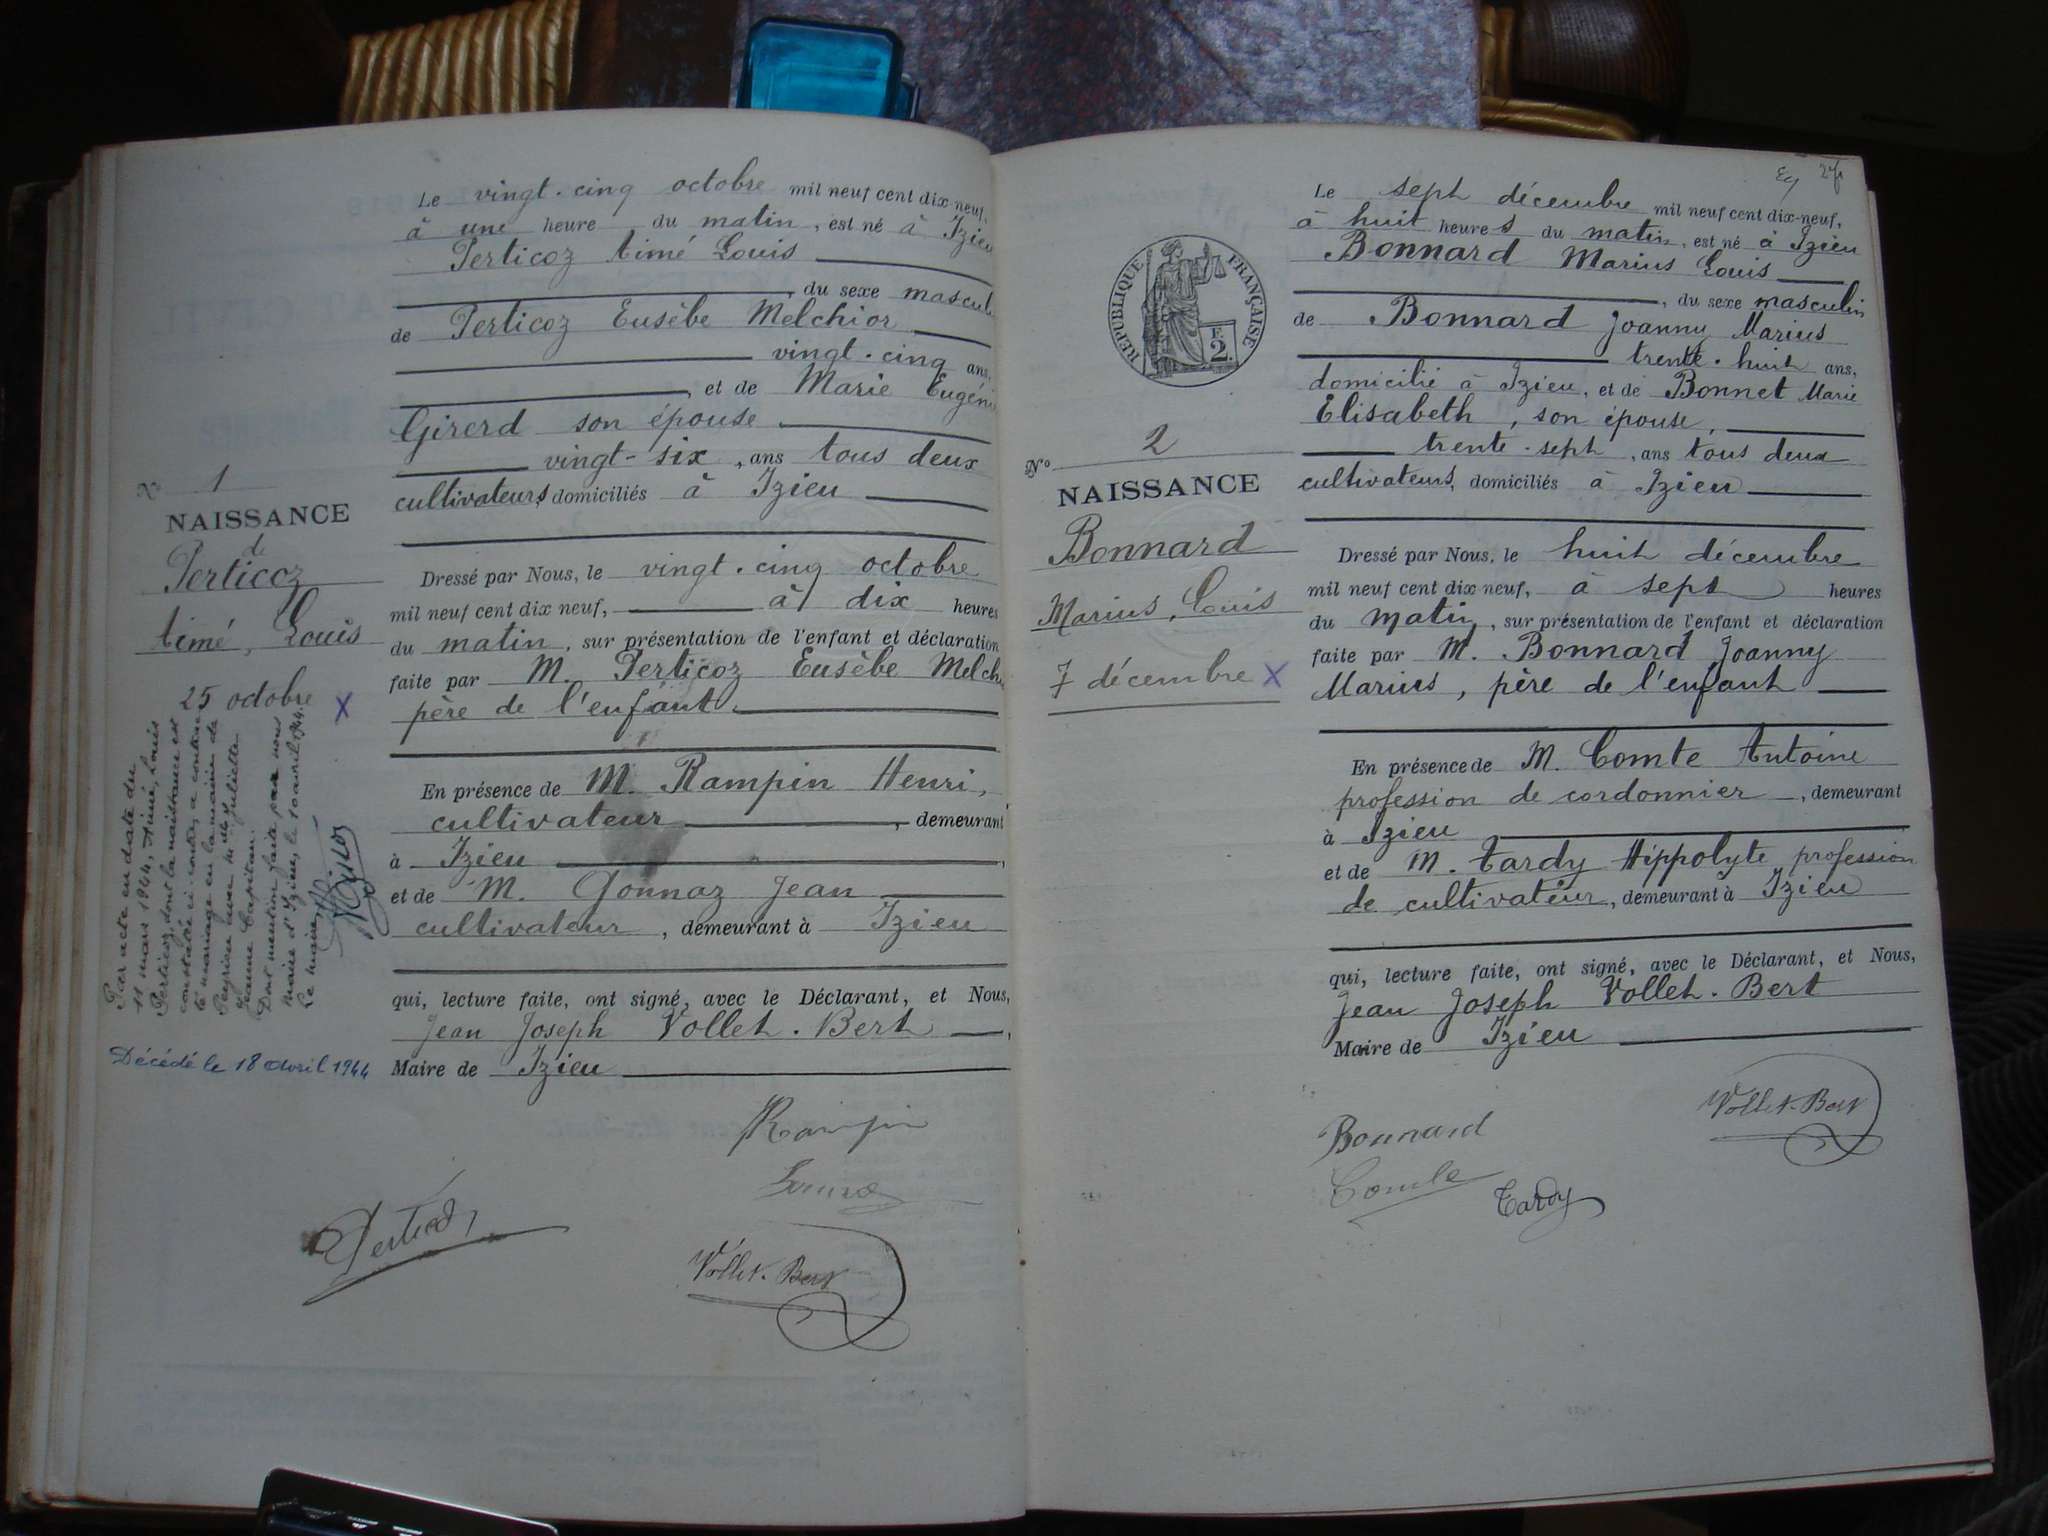 Le vingt-cinq octobre mil neuf cent dix-neuf,
à une heure du matin, est né à Izieu
Perticoz Aimé Louis
, du sexe mascul
de Perticoz Eusèbe Melchior
vingt-cinq ans,
, et de Marie Eugénie
Girerd son épouse
vingt-six, ans tous deux
cultivateurs, domiciliés à Izieu
N° 1
NAISSANCE
de
Perticoz
Aimé, Louis
25 octobre X
Dressé par Nous, le vingt-cinq octobre
mil neuf cent dix neuf, à dix heures
du matin, sur présentation de l'enfant et déclaration
faite par M. Perticoz Eusèbe Melch
père de l'enfant.
En présence de M. Rampin Henri,
cultivateur, demeurant
à Izieu,
et de M. Gonnaz Jean
cultivateur, demeurant à Izieu
qui, lecture faite, ont signé, avec le Déclarant, et Nous,
Jean Joseph Vollet-Bert,
Maire de Izieu
Par acte en date du
11 mars 1944, Aimé, Louis
Perticoz, dont la naissance est
constatée ci-contre, a contrac
té mariage en la mairie de
Peyrieu avec Mlle Juliette
Jeanne Capitan.
Dont mention faite par nous
maire d'Izieu, le 10 avril 1944.
Le maire,
Décédé le 18 avril 1944
Rampin
Perticoz
Vollet-Bert
27
Le sept décembre mil neuf cent dix-neuf,
à huit heures du matin, est né à Izieu
Bonnard Marius Louis
, du sexe masculin
de Bonnard Joanny Marius
trente-huit ans,
domicilié à Izieu, et de Bonnet Marie
Elisabeth, son épouse,
trente-sept, ans tous deux
cultivateurs, domiciliés à Izieu
REPUBLIQUE FRANÇAISE
F
2.
N° 2
NAISSANCE
Bonnard
Marius, Louis
7 décembre X
Dressé par Nous, le huit décembre
mil neuf cent dix neuf, à sept heures
du matin, sur présentation de l'enfant et déclaration
faite par M. Bonnard Joanny
Marius, père de l'enfant
En présence de M. Comte Antoine
profession de cordonnier, demeurant
à Izieu
et de M. Tardy Hippolyte profession
de cultivateur, demeurant à Izieu
qui, lecture faite, ont signé, avec le Déclarant, et Nous,
Jean Joseph Vollet-Bert
Maire de Izieu
Vollet-Bert
Bonnard
Comte
Tardy